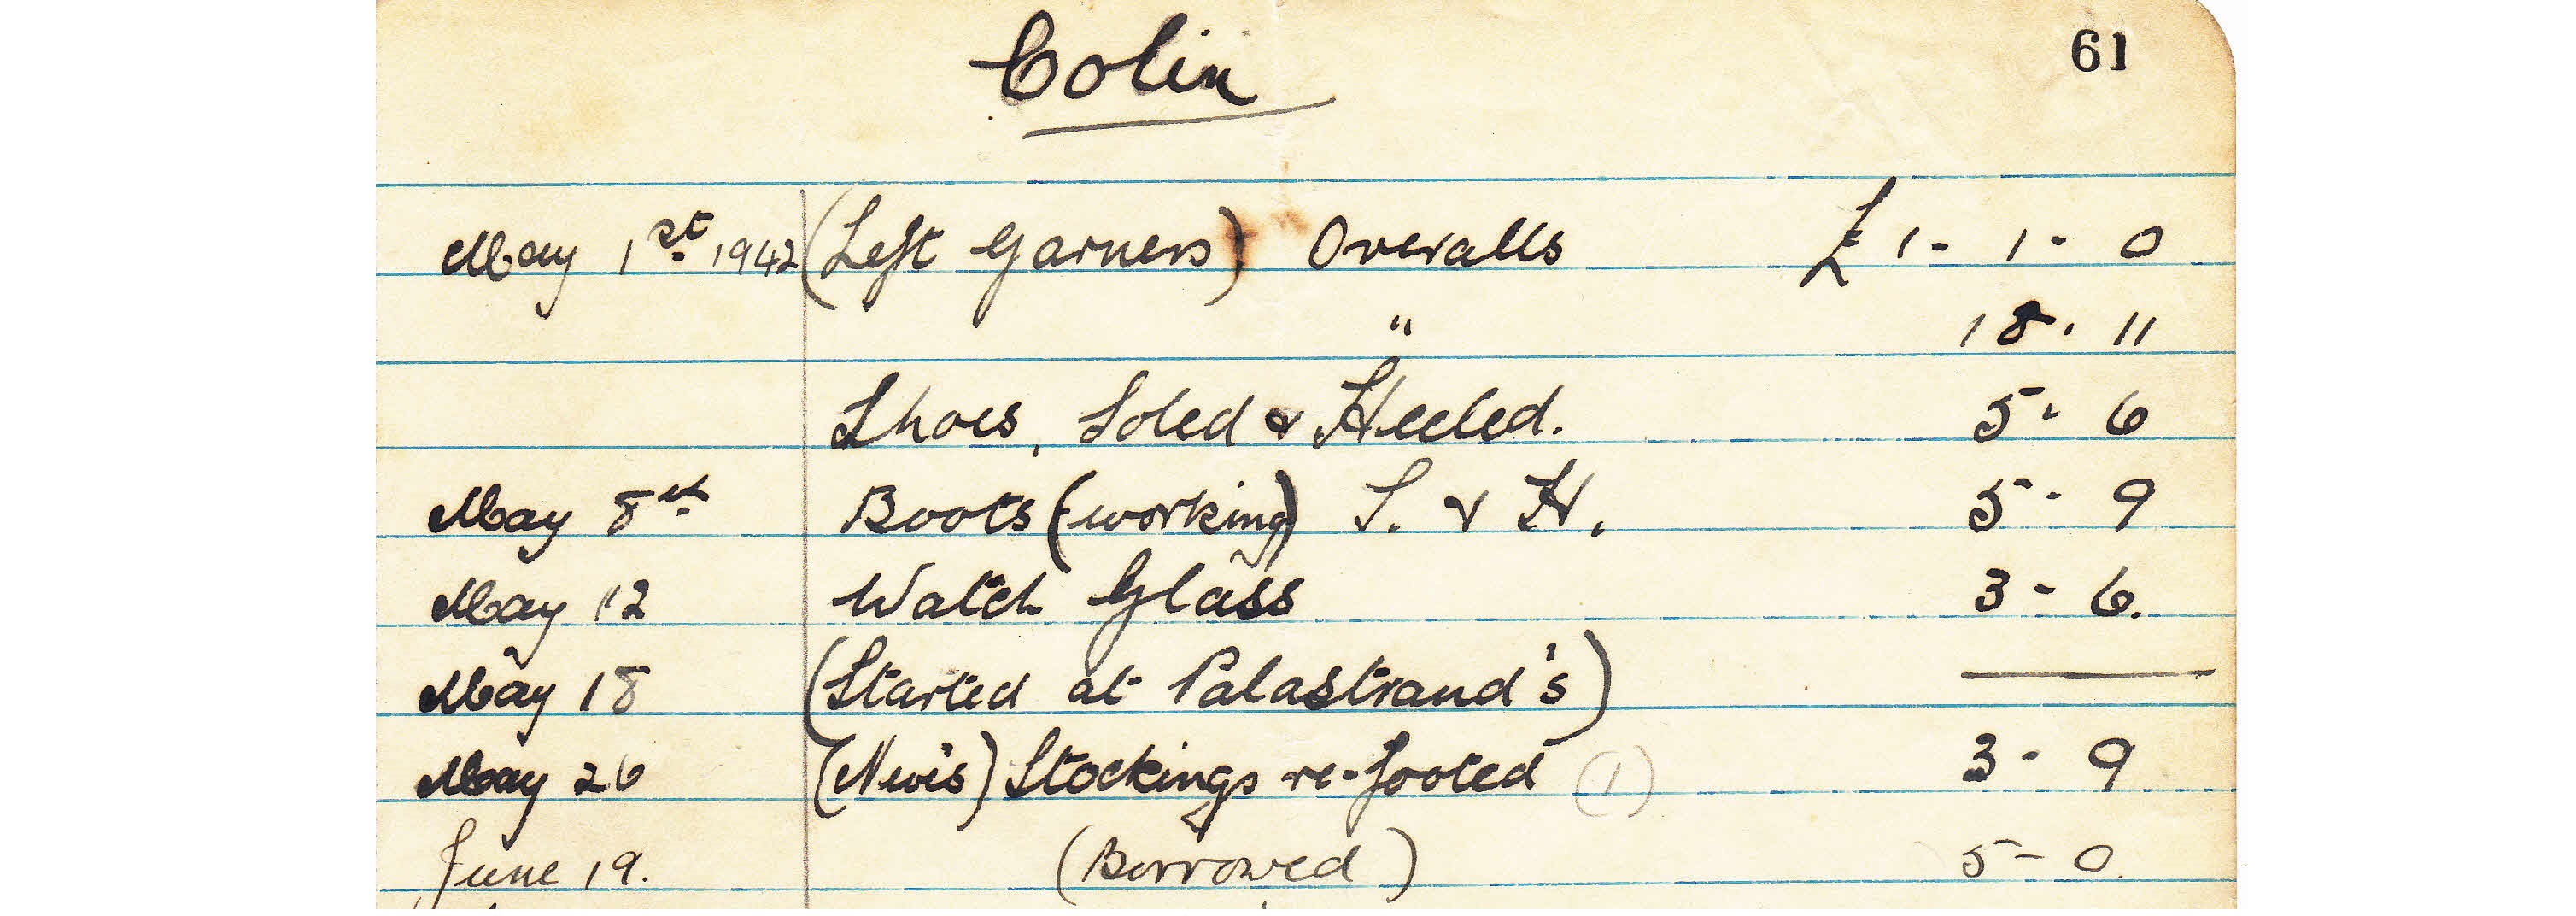 Colin
61
May 1st 1942 (Left Garners) Overalls £1-1-0
" 18-11
Shoes, Soled & Heeled. 5-6
May 8th Boots (working) S. & H. 5-9
May 12 Watch Glass 3-6.
May 18 (Started at Palastrand's)
May 26 Stockings re-footed (1) 3-9
June 19. (Borrowed) 5-0.